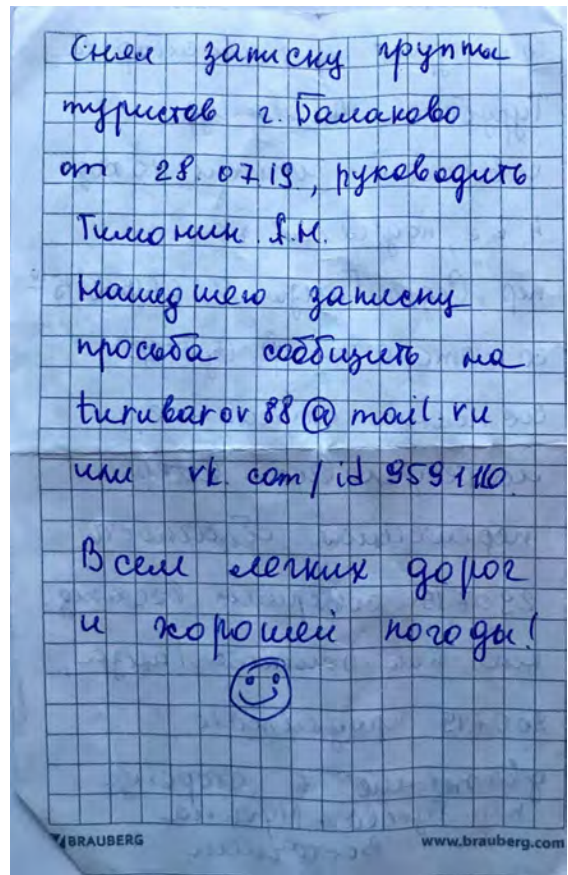 Снял записку группы
туристов г. Балаково
от 28.07.19, руководить
Тимонин Я.Н.
Нашедшего записку
просьба сообщить на
turubarov88@mail.ru
или vk.com/id959110.
Всем легких дорог
и хорошей погоды!
BRAUBERG
www.brauberg.com